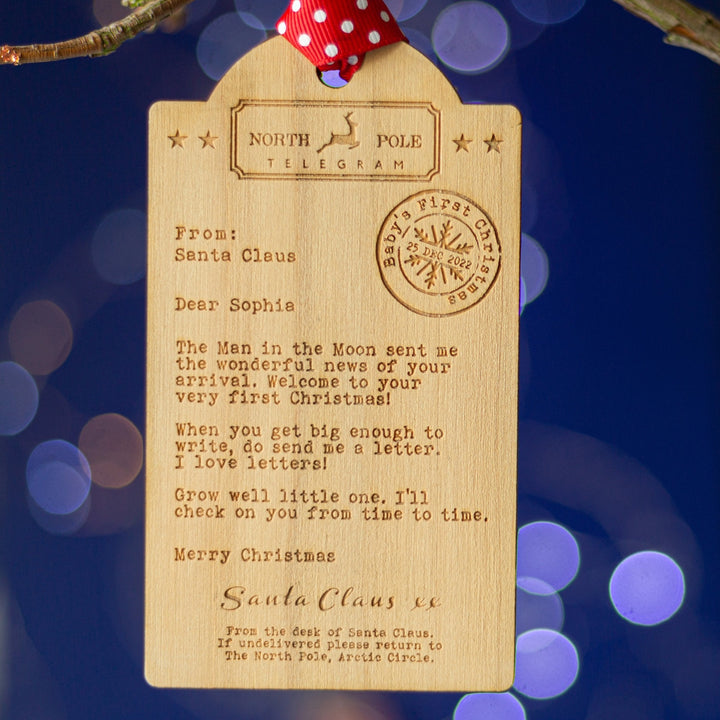 NORTH POLE
TELEGRAM
Baby's First Christmas
25 DEC 2022
From:
Santa Claus
Dear Sophia
The Man in the Moon sent me
the wonderful news of your
arrival. Welcome to your
very first Christmas!
When you get big enough to
write, do send me a letter.
I love letters!
Grow well little one. I'll
check on you from time to time.
Merry Christmas
Santa Claus xx
From the desk of Santa Claus.
If undelivered please return to
The North Pole, Arctic Circle.